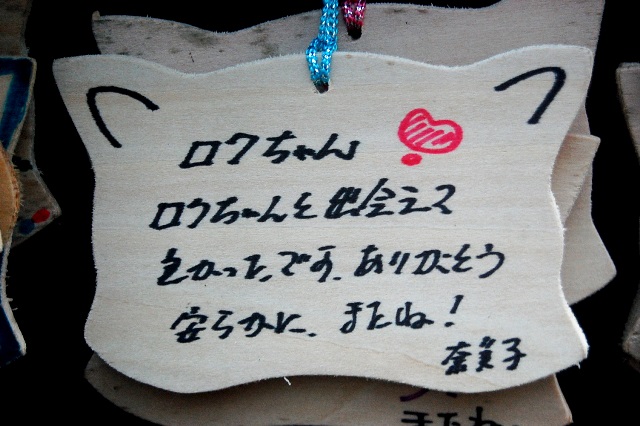 ロクちゃん
ロクちゃんと出会えて
よかったです。ありがとう
安らかに、またね!
奈美子
またね